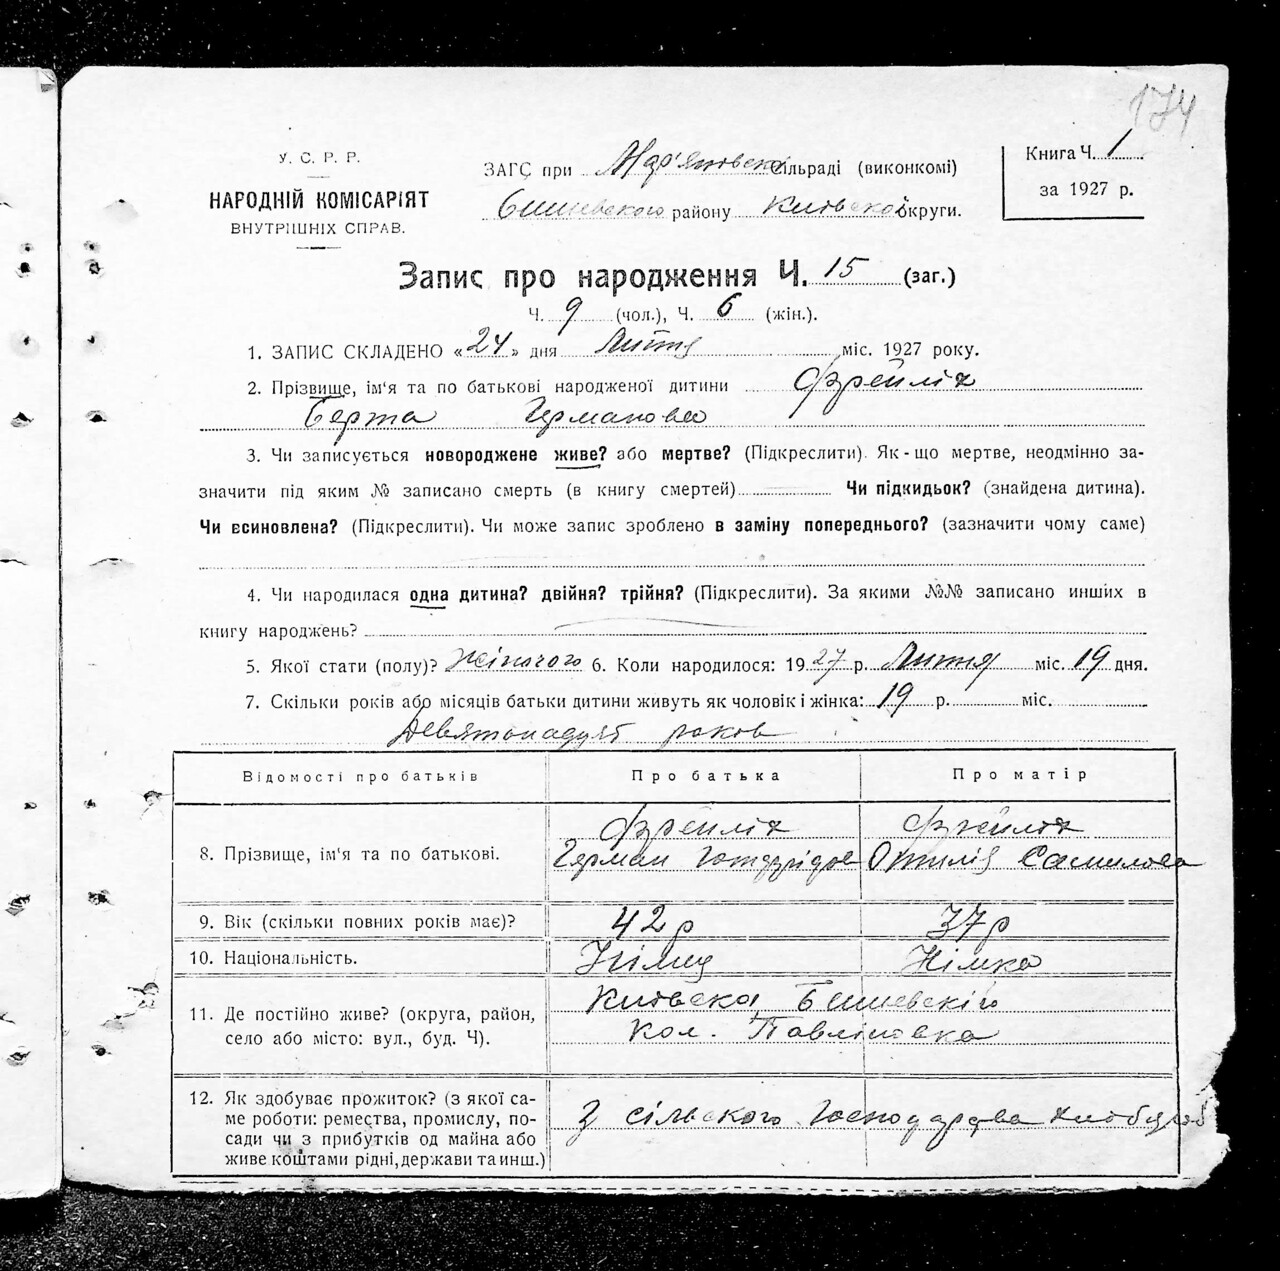 174
У. С. Р. Р.
НАРОДНІЙ КОМІСАРІЯТ
ВНУТРІШНІХ СПРАВ.
ЗАГС при Мар'яновска сільраді (виконкомі)
Бишевского району Київської округи.
Книга Ч. 1
за 1927 р.
Запис про народження Ч. 15 (заг.)
Ч. 9 (чол.), Ч. 6 (жін.).
1. ЗАПИС СКЛАДЕНО «24» дня Лютня міс. 1927 року.
2. Прізвище, ім'я та по батькові народженої дитини Фрейліх
Берта Германова
3. Чи записується новороджене живе? або мертве? (Підкреслити). Як-що мертве, неодмінно за-
значити під яким № записано смерть (в книгу смертей) Чи підкидьок? (знайдена дитина).
Чи всиновлена? (Підкреслити). Чи може запис зроблено в заміну попереднього? (зазначити чому саме)
4. Чи народилася одна дитина? двійня? трійня? (Підкреслити). За якими №№ записано инших в
книгу народжень?
5. Якої стати (полу)? Жіночого 6. Коли народилося: 1927 р. Лютня міс. 19 дня.
7. Скільки років або місяців батьки дитини живуть як чоловік і жінка: 19 р. міс.
Девятонадцят роков
Відомості про батьків Про батька Про матір
8. Прізвище, ім'я та по батькові.
Фрейліх Фрейліх
Герман Готфрідов Отилія Самилова
9. Вік (скільки повних років має)? 42 р 37 р
10. Національність. Німец Німка
11. Де постійно живе? (округа, район,
село або місто: вул., буд. Ч).
Київска Бишевскіго
Кол. Павлиівка
12. Як здобуває прожиток? (з якої са-
ме роботи: ремества, промислу, по-
сади чи з прибутків од майна або
живе коштами рідні, держави та инш.)
З сільского господарства хлібороб